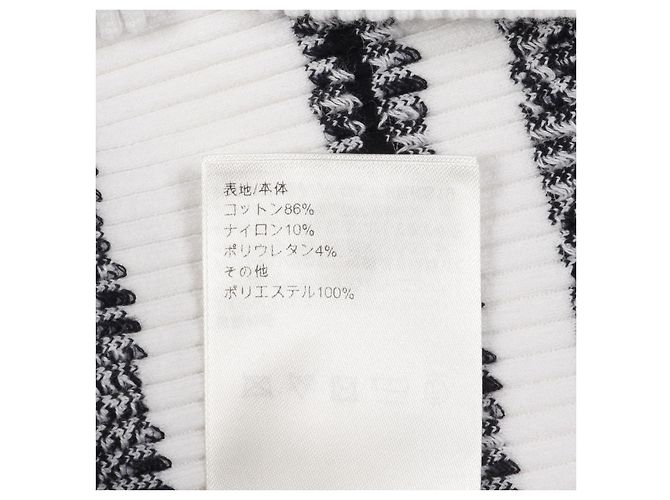 表地/本体
コットン86%
ナイロン10%
ポリウレタン4%
その他
ポリエステル100%